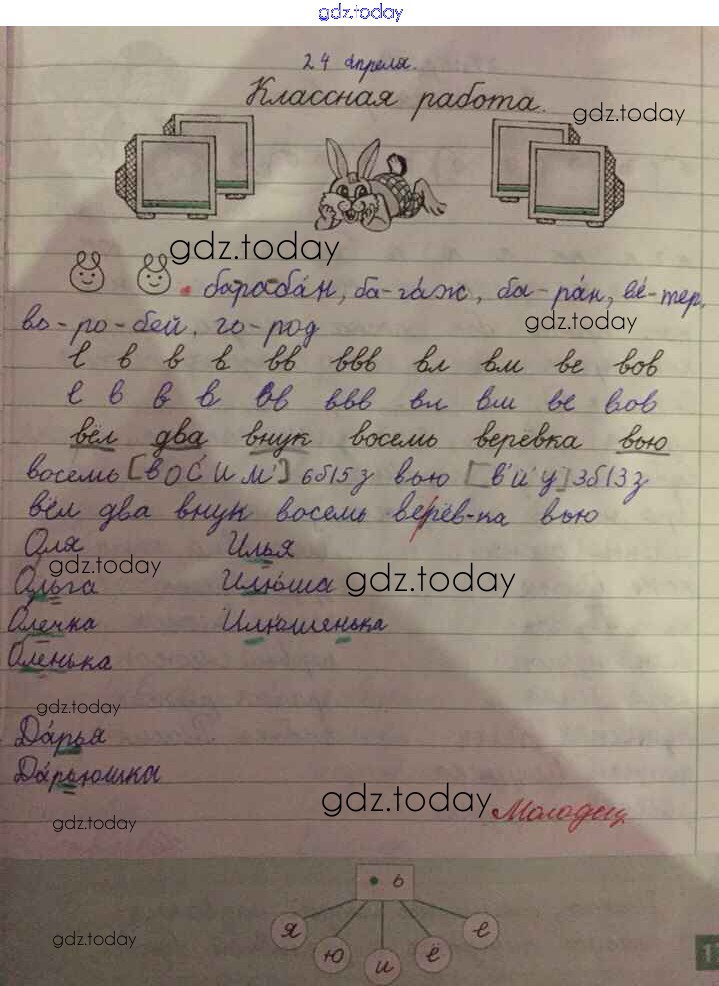 gdz.today
24 апреля.
Классная работа.
gdz.today
gdz.today
барабáн, ба-гáж, ба-рáн, вé-тер,
во-ро-бей, го-род
gdz.today
в в в в вв ввв вл вм ве вов
в в в в вв ввв вл вм ве вов
вёл два внук восемь верёвка вью
восемь [вОС'ИМ'] 6б15з вью [в'йу] 3б13з
вёл два внук восемь верёв-ка вью
Оля Илья
gdz.today
Ольга Илюша gdz.today
Олечка Илюшенька
Оленька
gdz.today
Дáрья
Дáрьюшка
gdz.today Молодец
gdz.today
ь
я ю и ё е
gdz.today